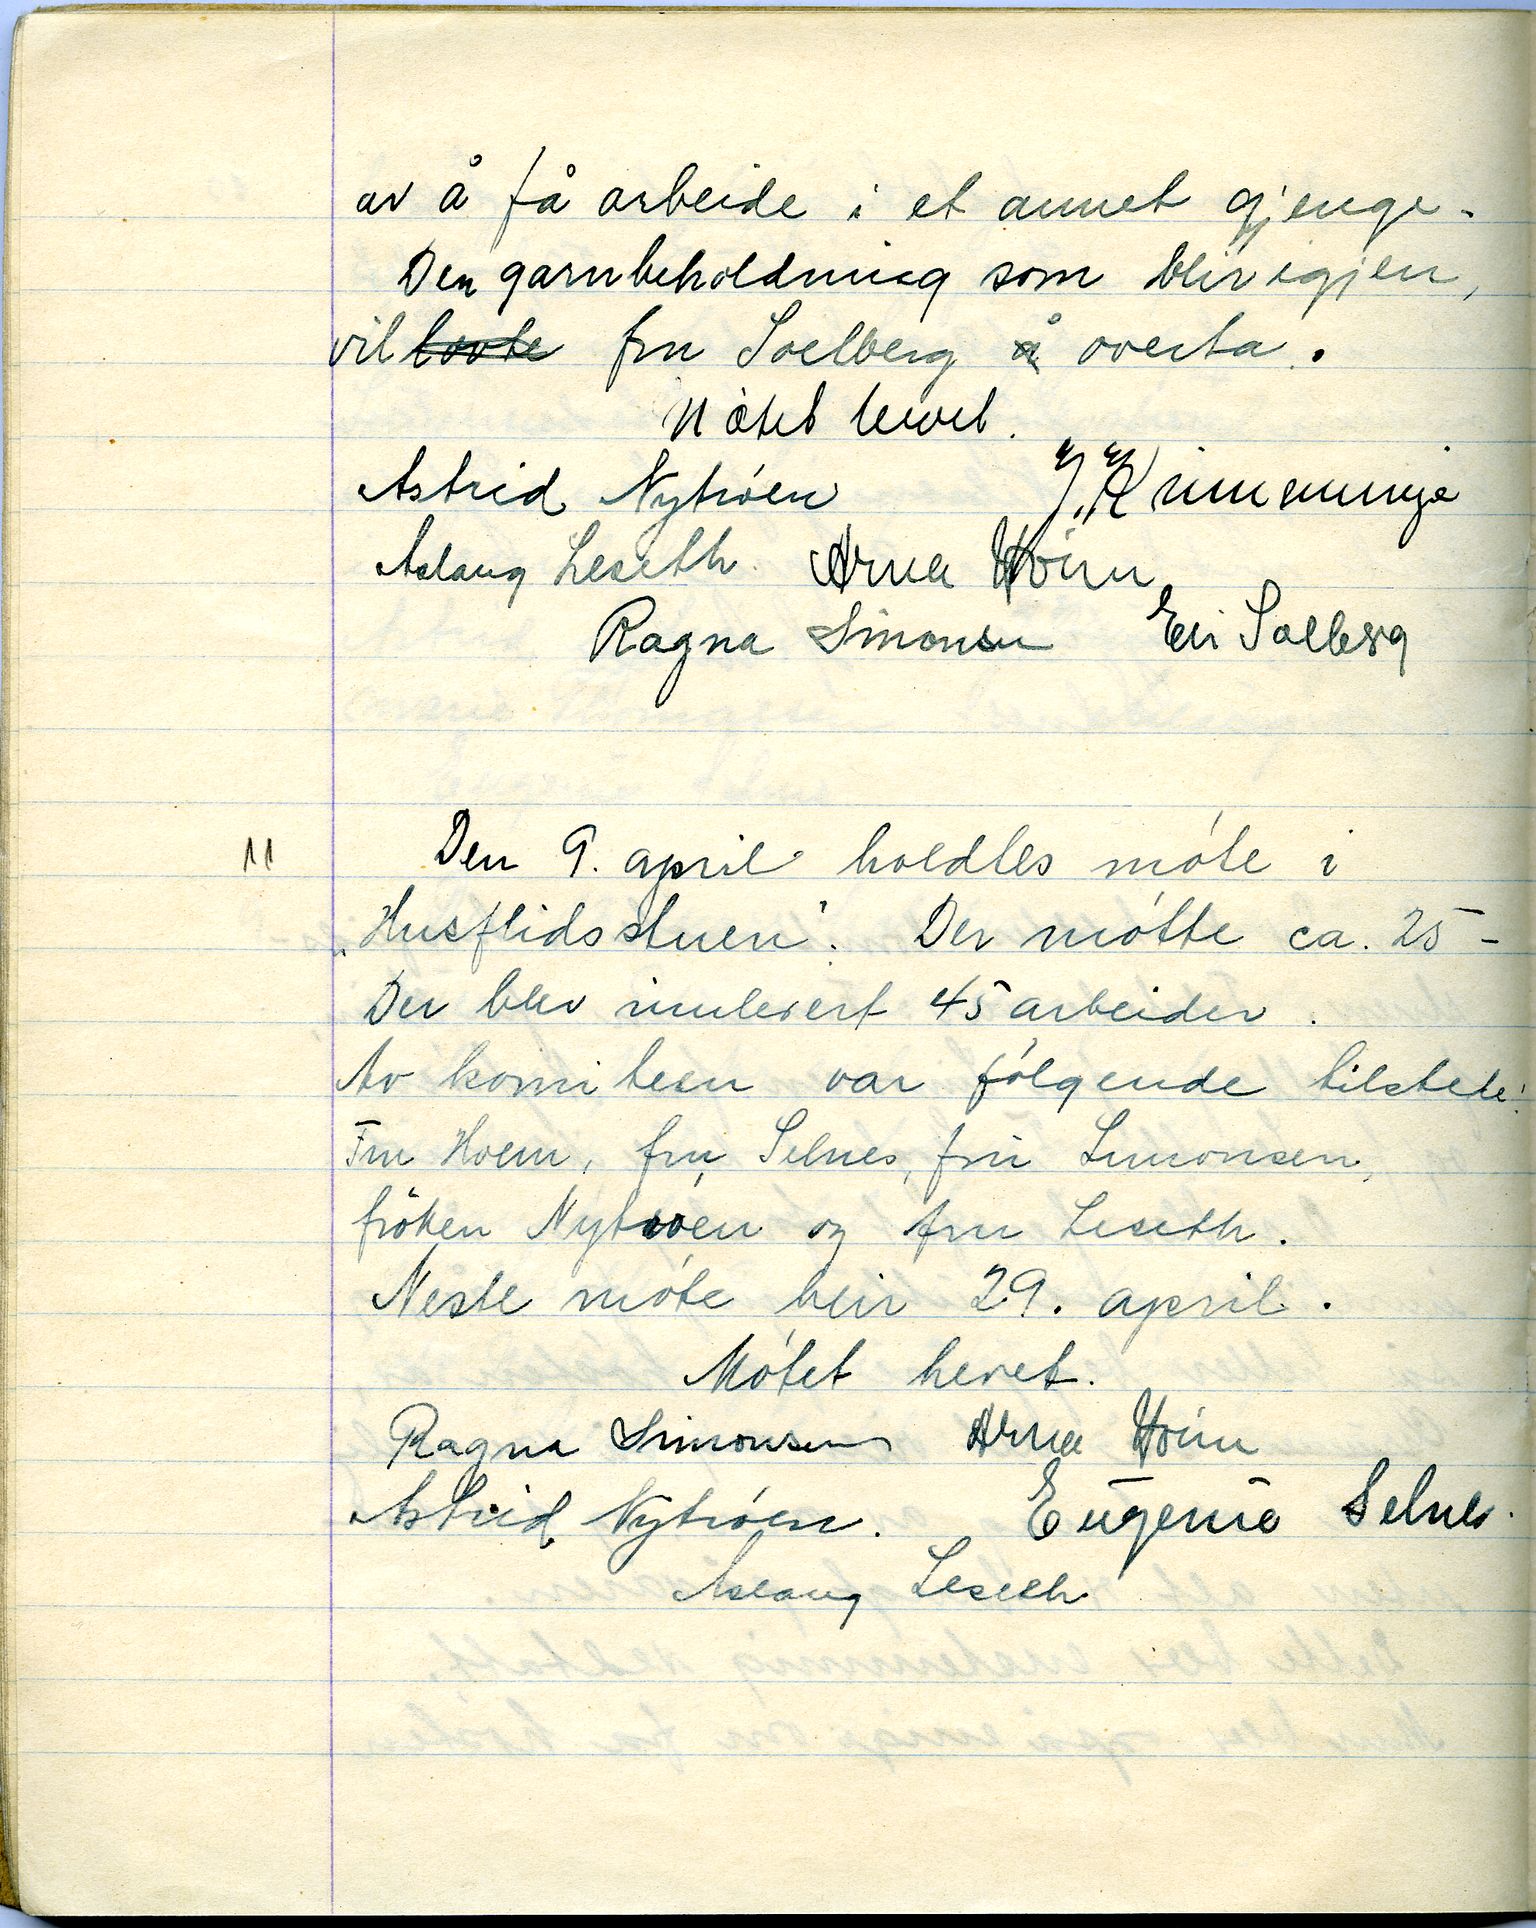 av å få arbeide i et annet gjenge.
Den garnbeholdning som blir igjen,
vil lovte fru Solberg å overta.
Møtet hevet.
Astrid Nytrøen
Aslaug Leseth. Arna Hoem
Ragna Simonsen Eli Solberg
11 Den 9. april holdtes møte i
„Husflidsstuen”. Der møtte ca. 25 -
Der blev innlevert 45 arbeider.
Av komiteen var følgende tilstede:
Fru Hoem, fru Selnes, fru Simonsen,
frøken Nytrøen og fru Leseth.
Neste møte blir 29. april.
Møtet hevet.
Ragna Simonsen Arna Hoem
Astrid Nytrøen. Eugenie Selnes.
Aslaug Leseth